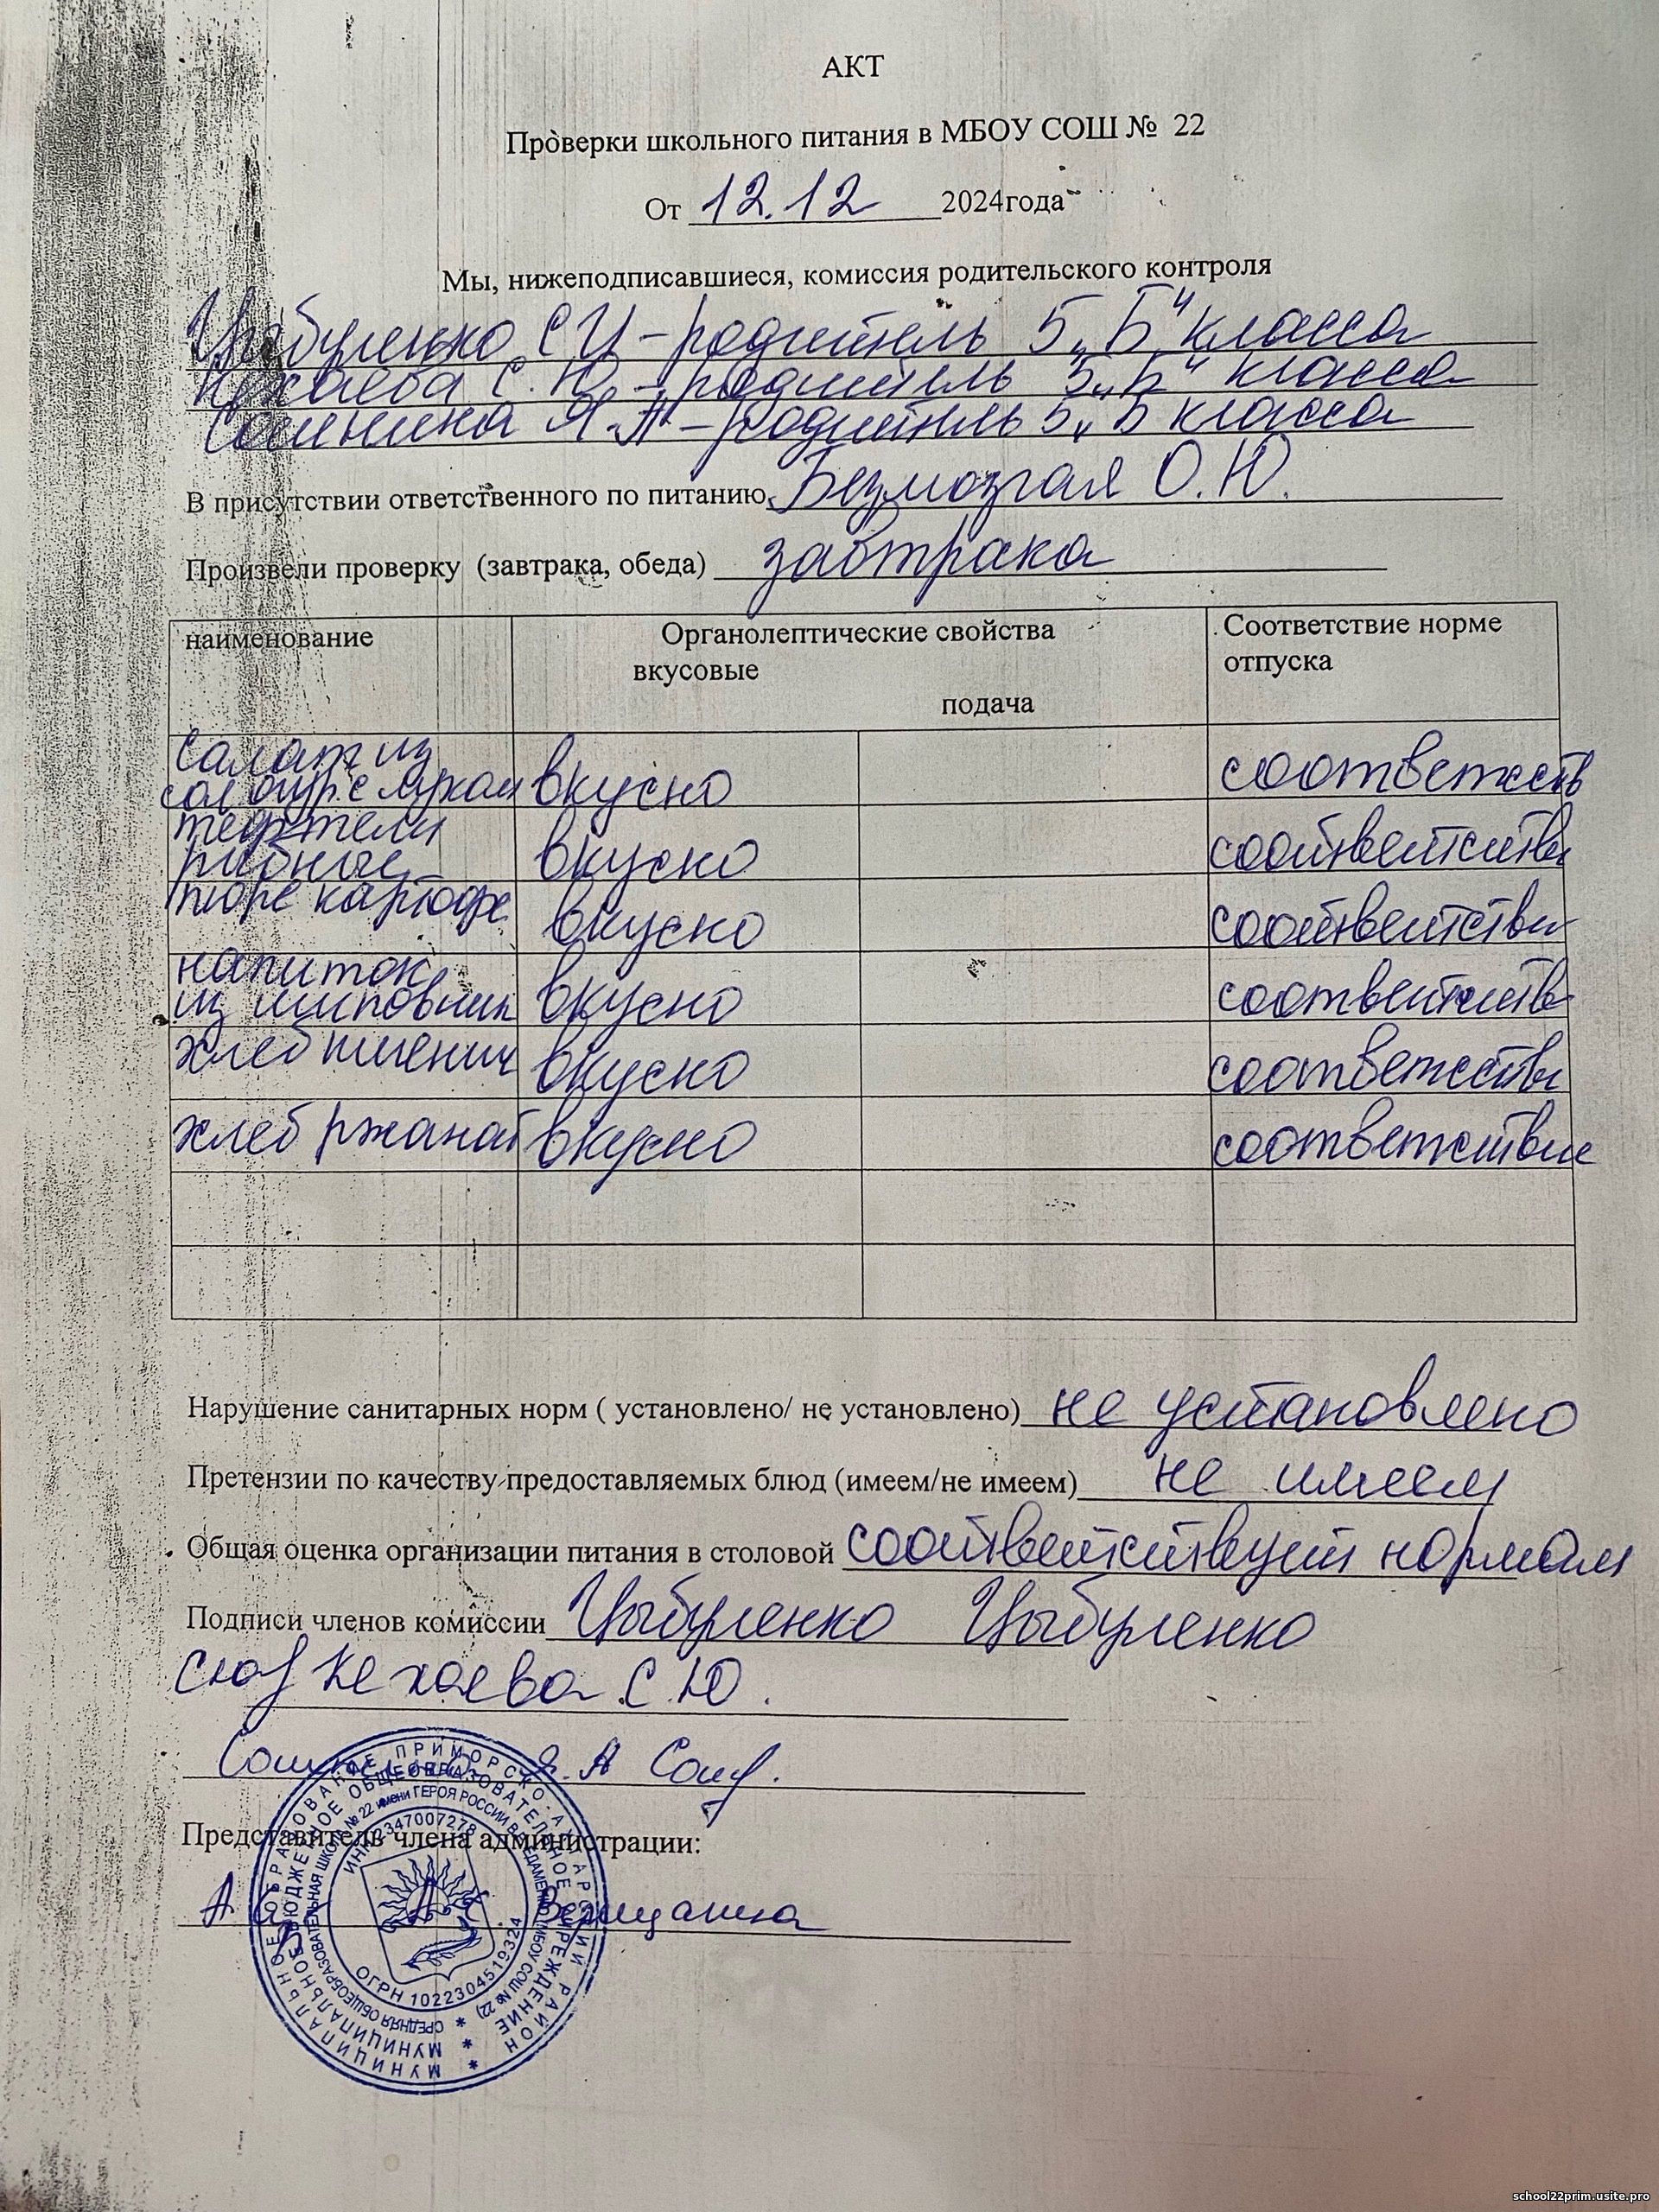 АКТ
Проверки школьного питания в МБОУ СОШ № 22
От 12.12 2024года
Мы, нижеподписавшиеся, комиссия родительского контроля
Цыбуленко С И - родитель 5 „Б" класса
Кехаева С. Ю. - родитель 5 „Б" класса
Я.А - родитель 5 „Б класса
В присутствии ответственного по питанию Безмозгая О.Ю.
Произвели проверку (завтрака, обеда) завтрака
наименование Органолептические свойства Соответствие норме
вкусовые отпуска
подача
салат из
сол огур с луком вкусно соответств
тефтели
рыбные вкусно соответстви
пюре картофе вкусно соответстви
напиток
из шиповник вкусно соответств
хлеб пшенич вкусно соответстви
хлеб ржаной вкусно соответствие
Нарушение санитарных норм ( установлено/ не установлено) не установлено
Претензии по качеству предоставляемых блюд (имеем/не имеем) не имеем
Общая оценка организации питания в столовой соответствует нормам
Подписи членов комиссии Цыбуленко Цыбуленко
Кехаева С.Ю.
Я.А
Представитель члена администрации:
МУНИЦИПАЛЬНОЕ ОБРАЗОВАНИЕ ПРИМОРСКО-АХТАРСКИЙ РАЙОН
МУНИЦИПАЛЬНОЕ БЮДЖЕТНОЕ ОБЩЕОБРАЗОВАТЕЛЬНОЕ УЧРЕЖДЕНИЕ
СРЕДНЯЯ ОБЩЕОБРАЗОВАТЕЛЬНАЯ ШКОЛА № 22 имени ГЕРОЯ РОССИИ (МБОУ СОШ № 22)
ИНН 2347007278
ОГРН 1022304519324
school22prim.usite.pro